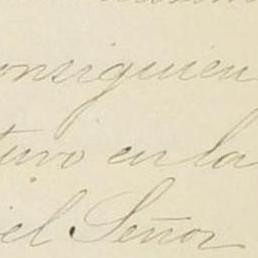 onsiguien
tuvo en la
el Señor